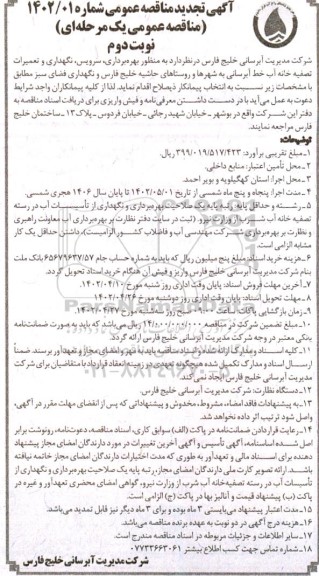 آگهی تجدید مناقصه عمومی شماره ۱۴۰۲/۰۱
(مناقصه عمومی یک مرحله‌ای)
نوبت دوم
شرکت مدیریت آبرسانی خلیج فارس در نظر دارد به منظور بهره‌برداری، سرویس، نگهداری و تعمیرات
تصفیه خانه آب خط آبرسانی به شهرها و روستاهای حاشیه خلیج فارس و نگهداری فضای سبز مطابق
با مشخصات زیر نسبت به انتخاب پیمانکار ذیصلاح اقدام نماید. لذا از کلیه پیمانکاران واجد شرایط
دعوت به عمل می‌آید با در دست داشتن معرفی‌نامه و فیش واریزی برای دریافت اسناد مناقصه به
دفتر این شرکت واقع در بوشهر ـ خیابان شهید رجائی ـ خیابان فردوس ـ پلاک ۱۳ـ ساختمان خلیج
فارس مراجعه نمایند.
توضیحات:
۱ـ مبلغ تقریبی برآورد: ۳۹۹/۰۱۹/۵۱۷/۴۲۳ ریال.
۲ـ محل تأمین اعتبار: منابع داخلی.
۳ـ محل اجرا: استان کهگیلویه و بویر احمد.
۴ـ مدت اجرا: پنجاه و پنج ماه شمسی از تاریخ ۱۴۰۲/۰۵/۰۱ تا پایان سال ۱۴۰۶ هجری شمسی.
۵ـ رشته و حداقل پایه: رتبه پایه یک صلاحیت بهره‌برداری و نگهداری از تأسیسات آب در رسته
تصفیه خانه آب شرب از وزارت نیرو (ثبت در سایت دفتر نظارت بر بهره‌برداری آب معاونت راهبری
و نظارت بر بهره‌برداری شرکت مهندسی آب و فاضلاب کشور الزامیست)، داشتن حداقل یک کار
مشابه الزامی است.
۶ـ هزینه خرید اسناد: مبلغ پنج میلیون ریال که باید به شماره حساب جام ۶۵۶۷۹۶۳۷/۵۷ بانک ملت
بنام شرکت مدیریت آبرسانی خلیج فارس واریز و فیش آن هنگام خرید اسناد تحویل گردد.
۷ـ آخرین مهلت فروش اسناد: پایان وقت اداری روز شنبه مورخ ۱۴۰۲/۰۴/۱۰.
۸ـ مهلت تحویل اسناد: پایان وقت اداری روز دوشنبه مورخ ۱۴۰۲/۰۴/۲۶.
۹ـ زمان بازگشایی پاکات: ساعت ۹:۰۰ صبح روز سه شنبه مورخ ۱۴۰۲/۰۴/۲۷.
۱۰ـ مبلغ تضمین شرکت در مناقصه ۱۴/۰۰۰/۰۰۰/۰۰۰ ریال می‌باشد که باید به صورت ضمانت‌نامه
بانکی معتبر در وجه شرکت مدیریت آبرسانی خلیج فارس ارائه گردد.
۱۱ـ کلیه اسناد و مدارک ارائه شده و اسناد مناقصه باید به مهر و امضای مجاز و تعهدآور برسند. ضمناً
ارسال اسناد و مدارک تکمیل شده هیچگونه تعهدی در زمینه انعقاد قرارداد با متقاضیان برای شرکت
مدیریت آبرسانی خلیج فارس ایجاد نمی‌کند.
۱۲ـ دستگاه نظارت: شرکت مدیریت آبرسانی خلیج فارس.
۱۳ـ به پیشنهادات فاقد امضاء، مشروط، مخدوش و پیشنهاداتی که پس از انقضای مهلت مقرر در آگهی،
واصل شود ترتیب اثر داده نخواهد شد.
۱۴ـ رعایت قرار دادن ضمانت‌نامه در پاکت (الف) سوابق کاری، اسناد مناقصه، دعوت‌نامه، رونوشت برابر
اصل شده اساسنامه، آگهی تأسیس و آگهی آخرین تغییرات در مورد دارندگان امضای مجاز پیشنهاد
دهنده برای اسناد مالی و تعهدآور به طوری که مدت اختیارات دارندگان امضای مجاز خاتمه نیافته
باشد. ارائه تصویر کارت ملی دارندگان امضای مجاز، رتبه پایه یک صلاحیت بهره‌برداری و نگهداری از
تأسیسات آب در رسته تصفیه‌خانه آب شرب از وزارت نیرو، گواهی امضای محضری تعهدآور و غیره در
پاکت (ب) پیشنهاد قیمت و آنالیز بها در پاکت (ج) الزامی است.
۱۵ـ مدت اعتبار پیشنهاد می‌بایستی ۳ ماه بوده و برای ۳ ماه دیگر نیز قابل تمدید می‌باشد.
۱۶ـ هزینه درج آگهی در دو نوبت به عهده برنده مناقصه می‌باشد.
۱۷ـ سایر اطلاعات و جزئیات مربوطه در اسناد مناقصه مندرج است.
۱۸ـ شماره تماس جهت کسب اطلاع بیشتر ۰۷۷۳۳۶۶۳۰۶۱
شرکت مدیریت آبرسانی خلیج فارس